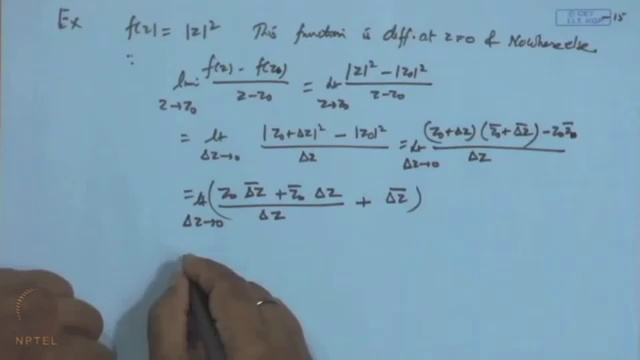 Ex f(z) = |z|² This function is diff. at z=0 & Nowhere else
∵ lim z→z₀ (f(z) - f(z₀))/(z - z₀) = lt z→z₀ (|z|² - |z₀|²)/(z - z₀)
= lt Δz→0 (|z₀+Δz|² - |z₀|²)/Δz = lt Δz→0 ((z₀+Δz)(z̄₀+Δ̅z̅) - z₀z̄₀)/Δz
= lt Δz→0 ((z₀ Δ̅z̅ + z̄₀ Δz)/Δz + Δ̅z̅)
NPTEL